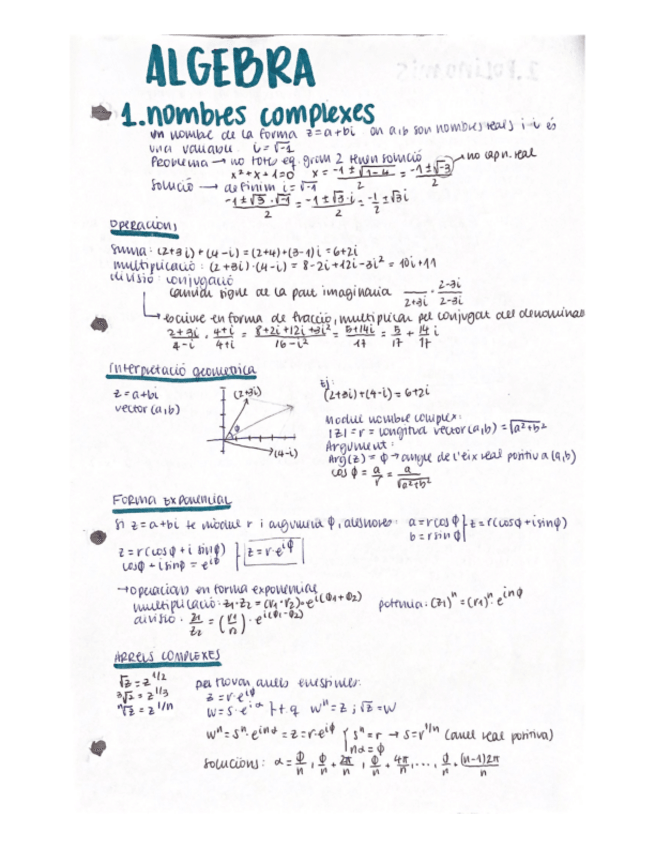 ALGEBRA
1. nombres complexes
un nombre de la forma z=a+bi on a,b son nombres reals i i és
una variable. i=√-1
Problema → no totes eq. gran 2 tenen solució → no cap n. real
x²+x+1=0 x = (-1±√(1-4))/2 = (-1±√-3)/2
Solució → definim i=√-1
(-1±√3·√-1)/2 = (-1±√3·i)/2 = -1/2 ± √3i
Operacions
Suma: (2+3i)+(4-i)=(2+4)+(3-1)i=6+2i
multiplicació: (2+3i)·(4-i)=8-2i+12i-3i²=10i+11
divisió: conjugació
canviar signe de la part imaginaria /(2+3i) · (2-3i)/(2-3i)
→ escriure en forma de fracció, multiplicar pel conjugat del denominas
(2+3i)/(4-i) · (4+i)/(4+i) = (8+2i+12i+3i²)/(16-i²) = (5+14i)/17 = 5/17 + 14/17 i
Interpretació geometrica
z=a+bi
vector(a,b)
(2+3i)
ϕ
(4-i)
Ej:
(2+3i)+(4-i)=6+2i
Modul nombre complex:
|z|=r=longitud vector(a,b)=√(a²+b²)
Argument:
Arg(z)=ϕ → angle de l'eix real positiu a (a,b)
cosϕ = a/r = a/√(a²+b²)
Forma Exponencial
Si z=a+bi te mòdul r i argument ϕ, aleshores: a=rcosϕ } z=r(cosϕ+isinϕ)
b=rsinϕ
z=r(cosϕ+i sinϕ) } z=r·e^iϕ
cosϕ+isinϕ=e^iϕ
→ operacions en forma exponencial
multiplicació: z1·z2=(r1·r2)·e^i(ϕ1+ϕ2) potència: (z1)^n=(r1)^n·e^inϕ
divisió: z1/z2=(r1/r2)·e^i(ϕ1-ϕ2)
ARRELS COMPLEXES
√z=z^1/2 per trovar arrels enesimes:
³√z=z^1/3 z=r·e^iϕ
ⁿ√z=z^1/n w=s·e^iα } t.q w^n=z ; √z=w
w^n=s^n·e^inα=z=r·e^iϕ { s^n=r → s=r^1/n (arrel real positiva)
nα=ϕ
Solucions: α=ϕ/n, ϕ/n+2π/n, ϕ/n+4π/n, ..., ϕ/n+(n-1)2π/n